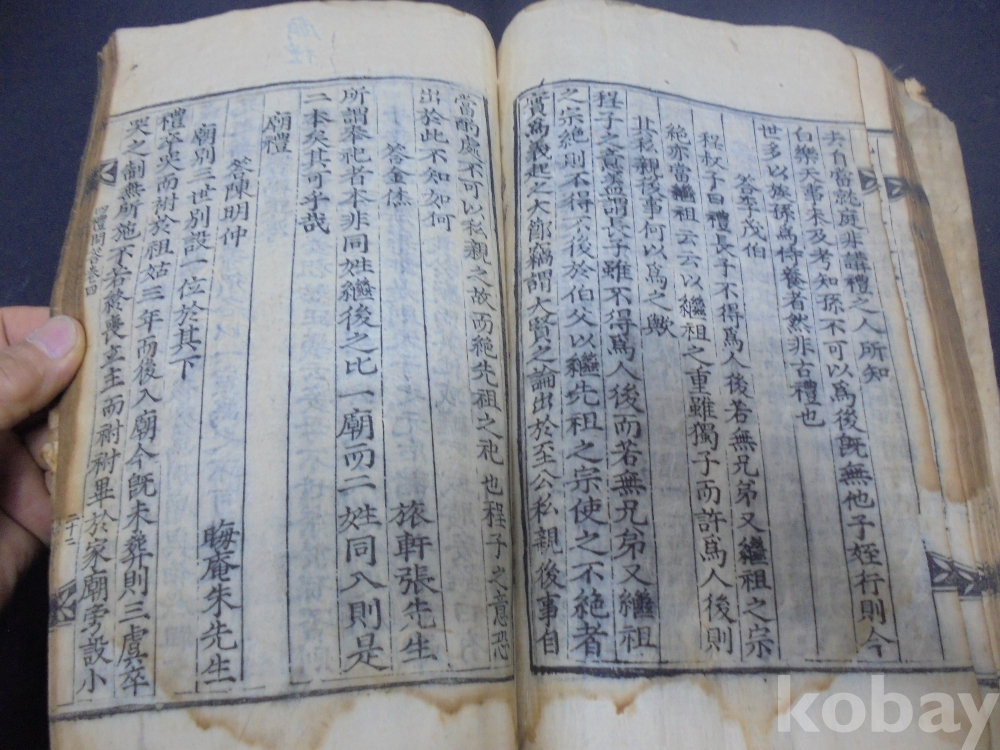 夫自當就質非講禮之人所知
白樂天事未及考知孫不可以爲後旣無他子姪行則今
世多以族孫爲侍養者然非古禮也
答李茂伯
程叔子曰禮長子不得爲人後若無兄弟又繼祖之宗
絶亦當繼祖云云以繼祖之重雖獨子而許爲人後則
其私親後事何以爲之歟
程子之意盖謂長子雖不得爲人後而若無兄弟又繼祖
之宗絶則不得不後於伯父以繼先祖之宗使之不絶者
實爲義起之大節竊謂大賢之論出於至公私親後事自
當酌處不可以私親之故而絶先祖之祀也程子之意恐
出於此不知如何
答金㤼 旅軒張先生
所謂奉祀者本非同姓繼後之比一廟而二姓同入則是
二本矣其可乎哉
廟禮
答陳明仲 晦庵朱先生
廟別三世別設一位於其下
禮卒哭而祔於祖姑三年而後入廟今旣未葬則三虞卒
哭之制無所施不若終喪立主而祔祔畢於家廟旁設小
四禮問答卷四
二十二
kobay